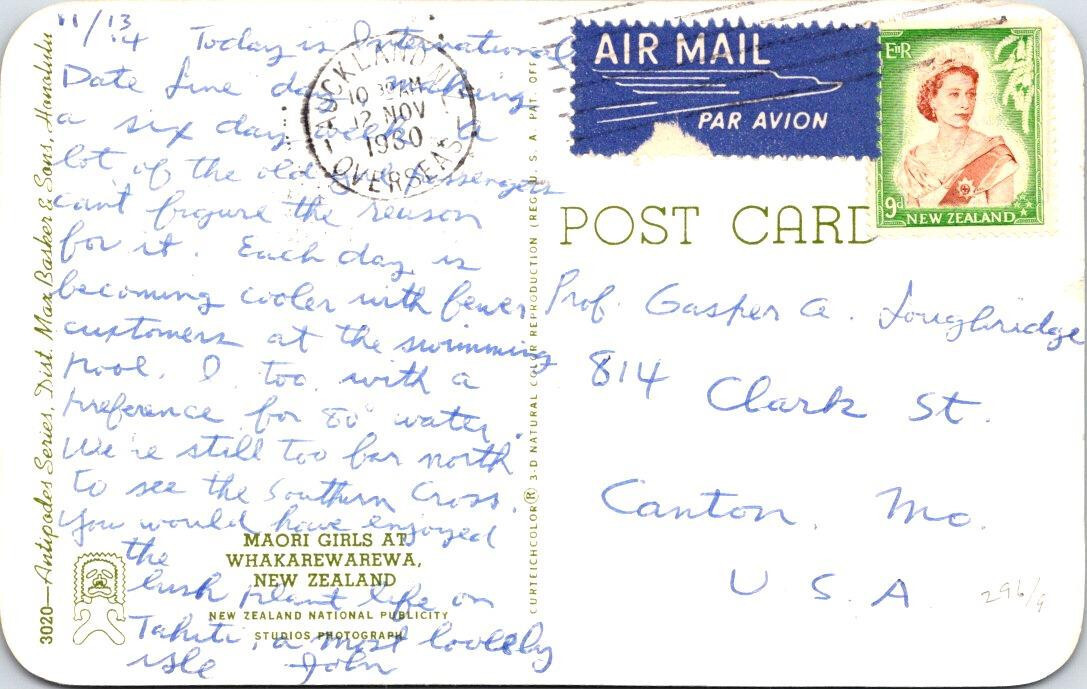 11/13
/14 Today is International
Date Line day making
a six day week. A
lot of the old passengers
can't figure the reason
for it. Each day is
becoming cooler with fewer
customers at the swimming
pool. I too with a
preference for 80° water.
We're still too far north
to see the Southern Cross.
You would have enjoyed
the
lush plant life on
Tahiti, a most lovely
isle John
3020—Antipodes Series, Dist. Max Basker & Sons, Honolulu
MAORI GIRLS AT
WHAKAREWAREWA,
NEW ZEALAND
NEW ZEALAND NATIONAL PUBLICITY
STUDIOS PHOTOGRAPH
CURTEICHCOLOR ® 3-D NATURAL COLOR REPRODUCTION (REG. U. S. A. PAT. OFF.
AUCKLAND N.Z.
10 30 PM
12 NOV
1960
OVERSEAS
AIR MAIL
PAR AVION
EIIR
9d NEW ZEALAND
POST CARD
Prof. Gasper A. Loughridge
814
Clark St.
Canton, Mo.
U S A
296/9